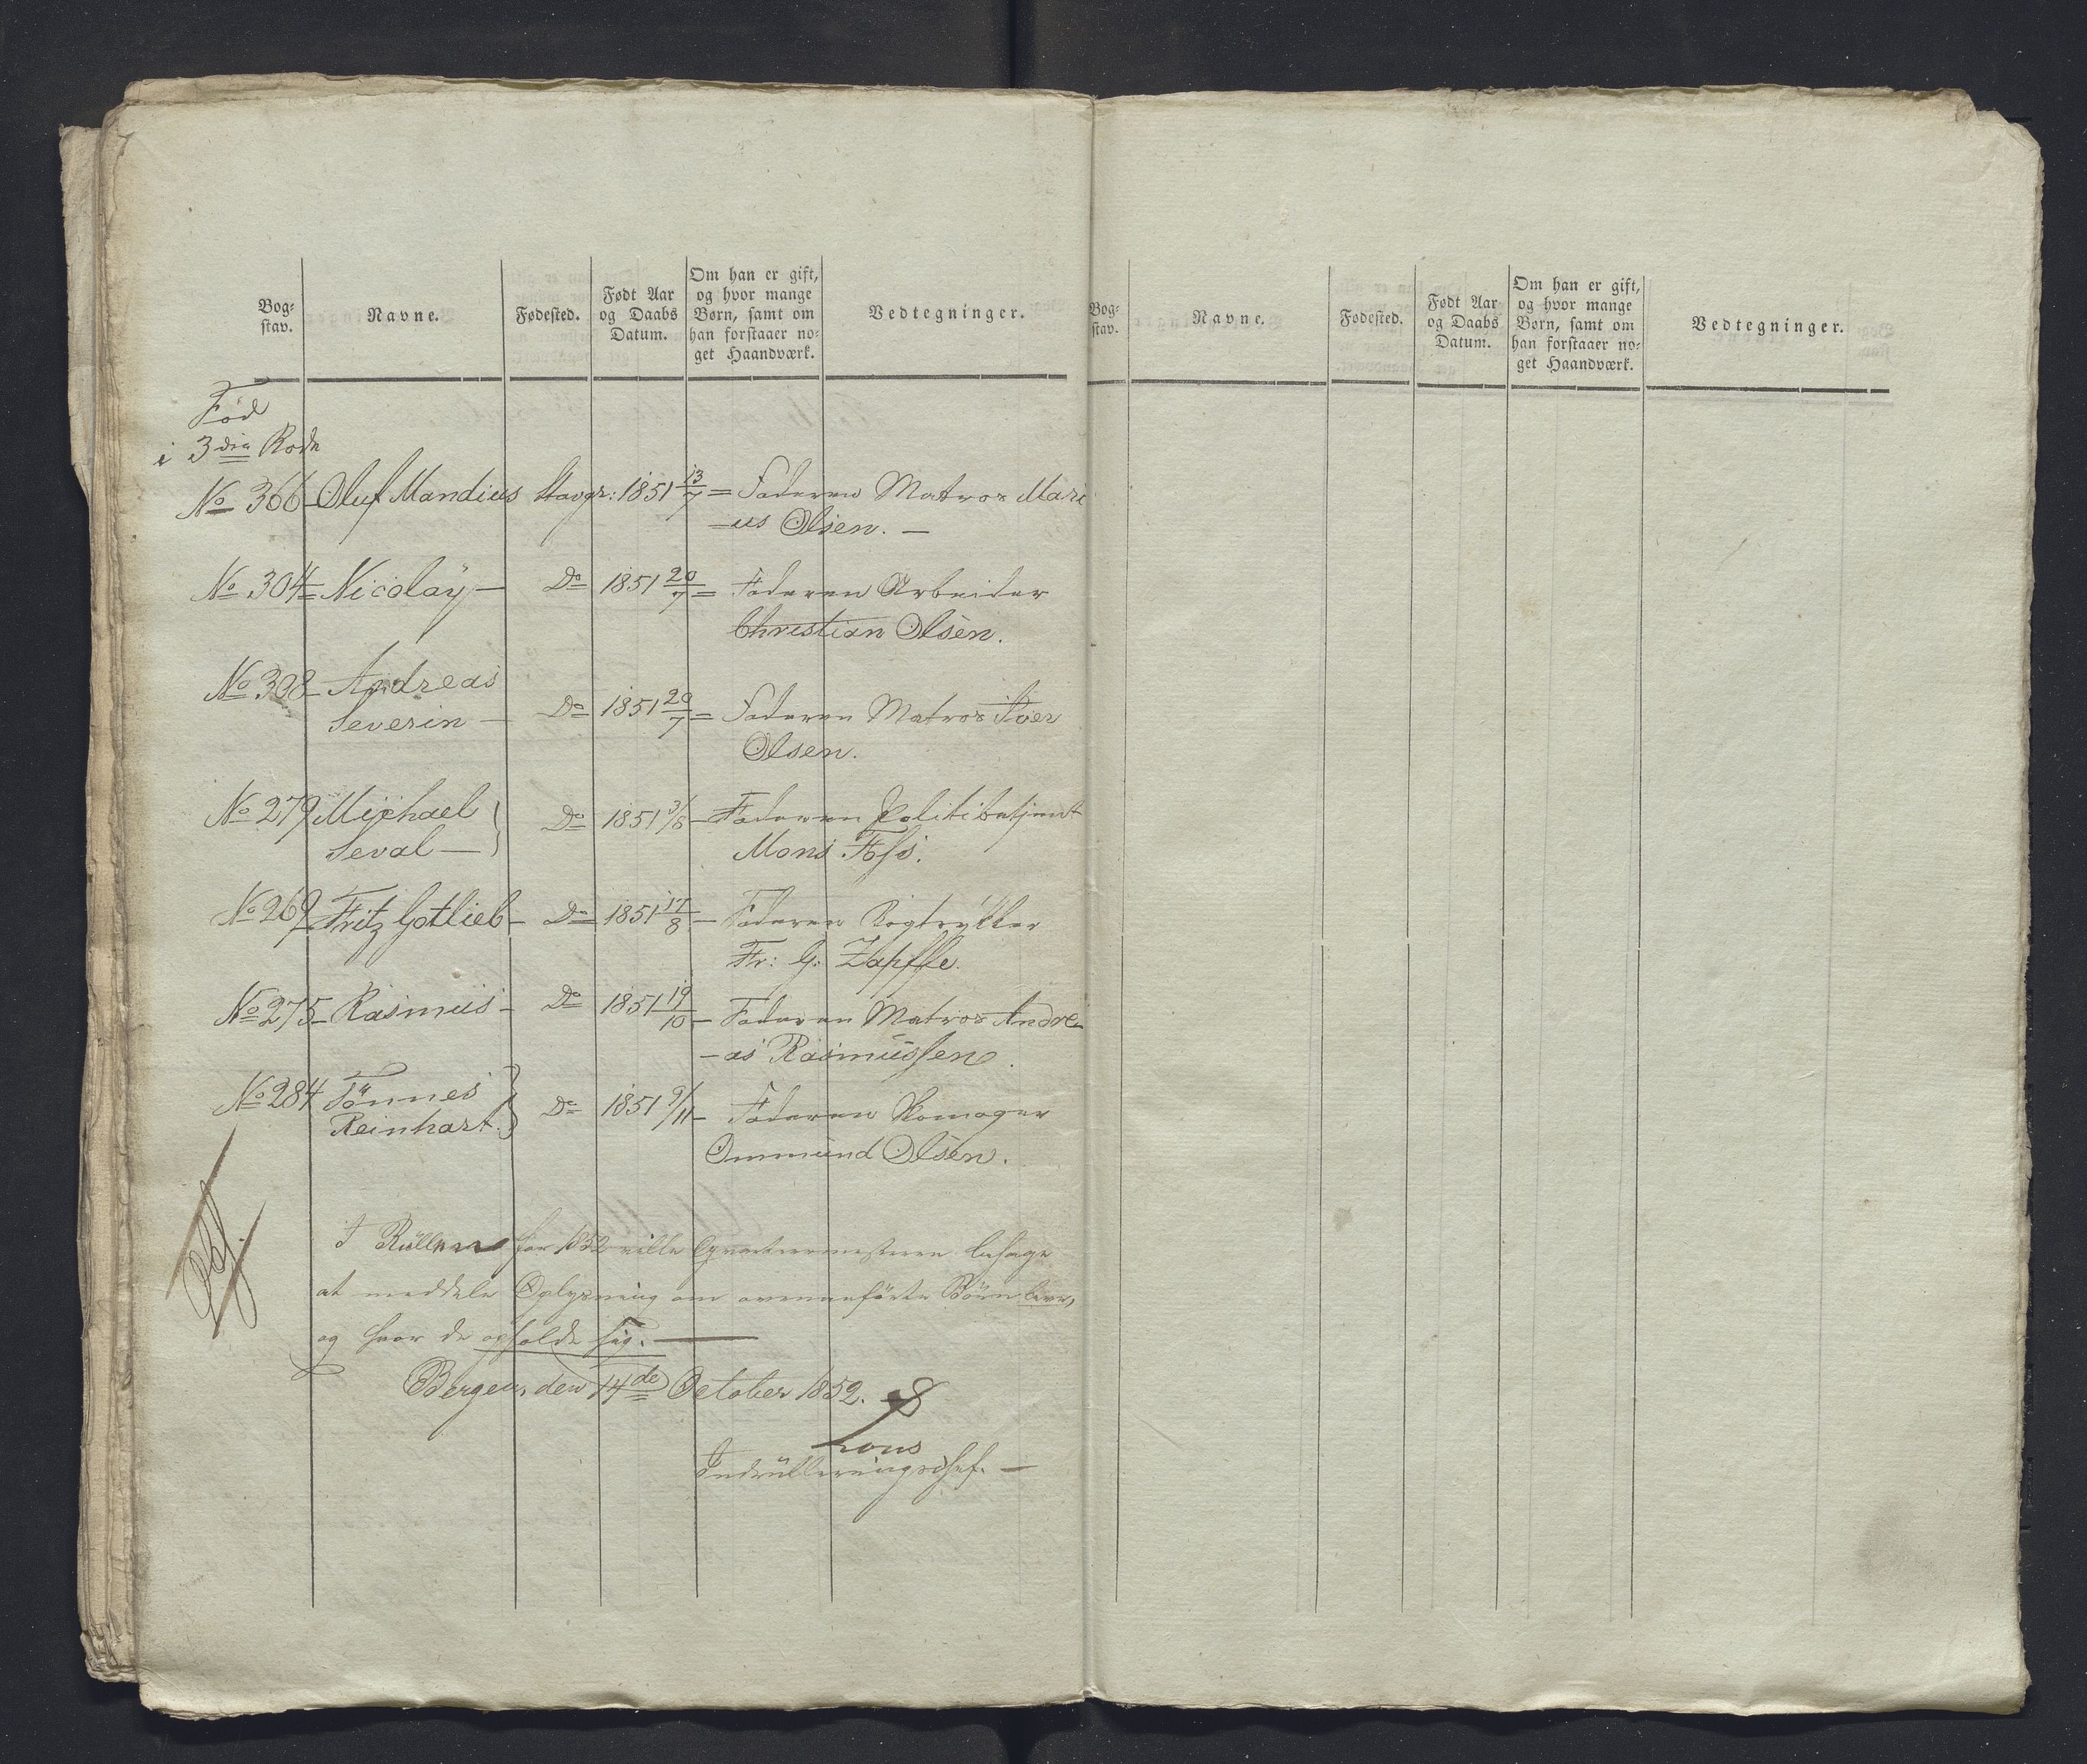 Bog-
stav.
Navne.
Fødested.
Født Aar
og Daabs
Datum.
Om han er gift,
og hvor mange
Børn, samt om
han forstaaer no-
get Haandværk.
Vedtegninger.
Fød
i 3die Rode
No 366 - Oluf Mandius Stavgr: 1851 13/7 = Faderen Matros Mari
-us Olsen. -
No 304 = Nicolaÿ - Do 1851 20/7 = Faderen Arbeider
Christian Olsen.
No 308 - Andreas
Severin - Do 1851 20/7 = Faderen Matros Iver
Olsen.
No 279 Michael
Seval - } Do 1851 3/8 - Faderen Politibetjent
Mons Foss.
No 269 - Fritz Gotlieb - Do 1851 17/8 - Faderen Bogtrykker
Fr: G: Zapffe.
No 275 - Rasmus - Do 1851 19/10 - Faderen Matros Andre-
-as Rasmussen.
No 284 Tönnes
Reinhart. } Do 1851 9/11 - Faderen Skomager
Ommund Olsen.
I Rullerne for 1852 ville Qvarteermesteren behage
at meddele Oplysning om ovenanførte Börn lever,
og hvor de opholde sig. -
Bergen, den 14de October 1852.
Lous
Indrulleringschef. -
Bog-
stav.
Navne.
Fødested.
Født Aar
og Daabs
Datum.
Om han er gift,
og hvor mange
Børn, samt om
han forstaaer no-
get Haandværk.
Vedtegninger.